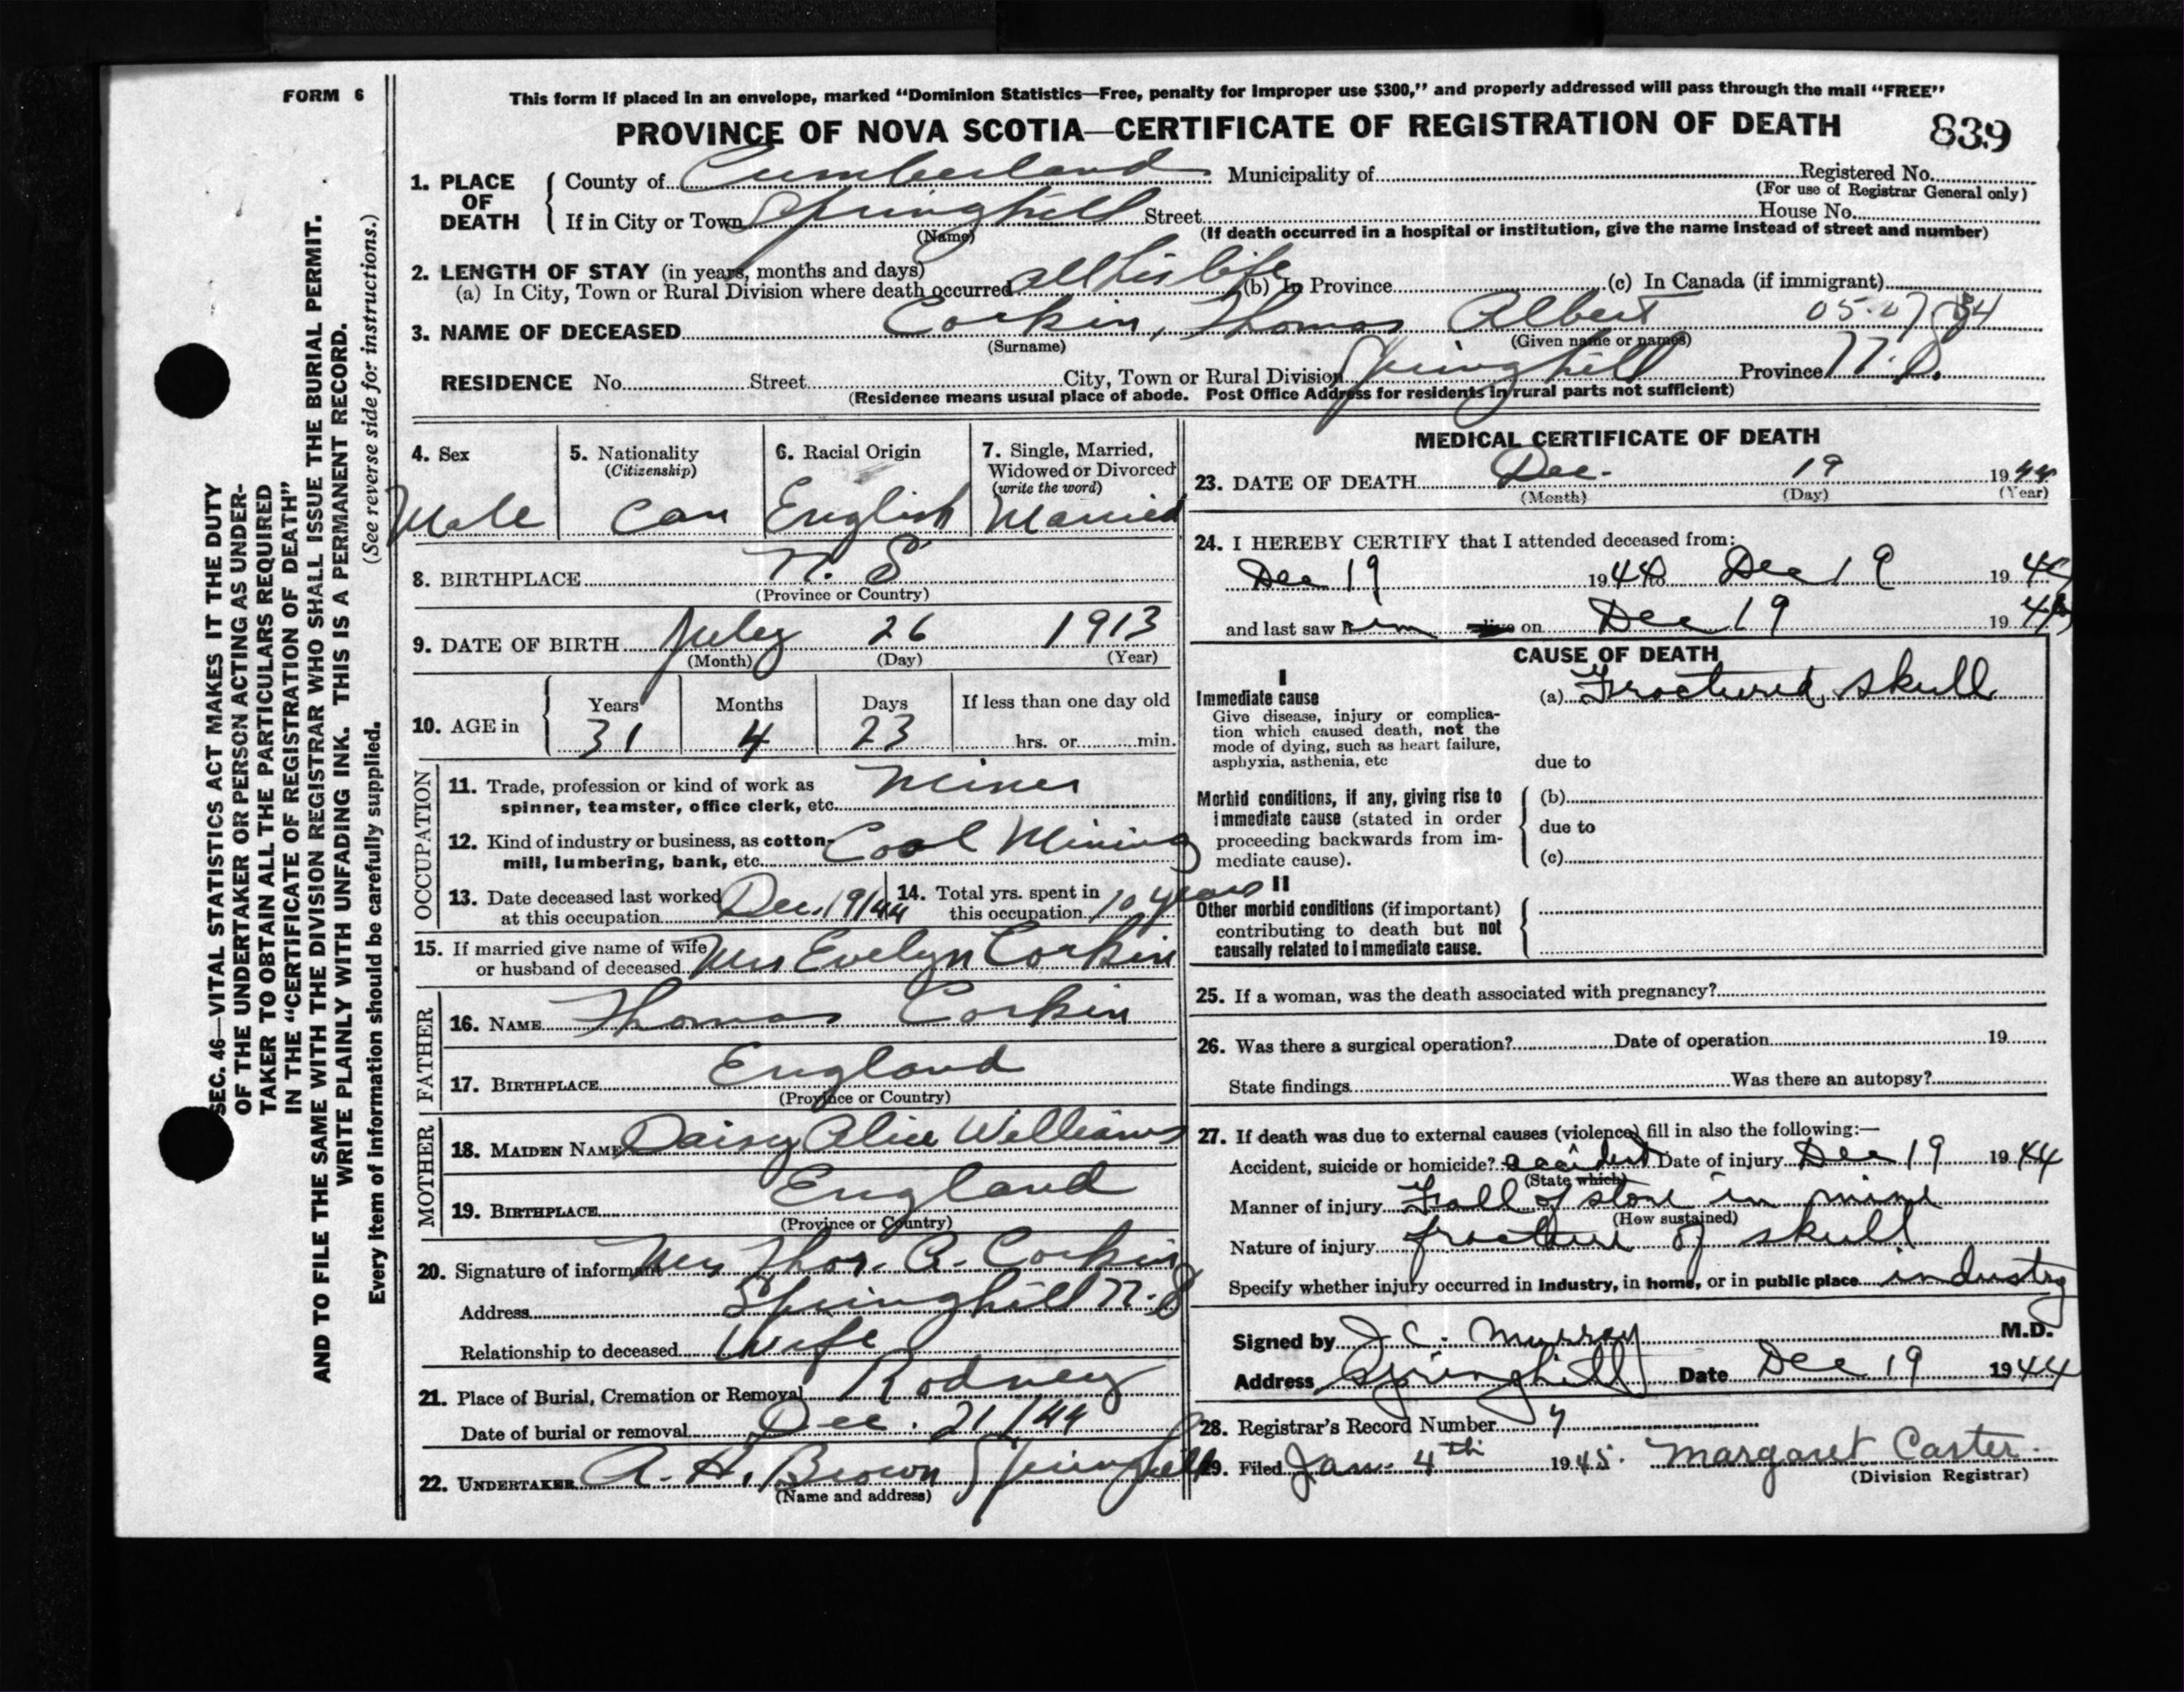 FORM 6
This form if placed in an envelope, marked "Dominion Statistics—Free, penalty for improper use $300," and properly addressed will pass through the mail "FREE"
PROVINCE OF NOVA SCOTIA—CERTIFICATE OF REGISTRATION OF DEATH 839
1. PLACE OF DEATH
County of Cumberland Municipality of Registered No.
(For use of Registrar General only)
If in City or Town Springhill Street House No.
(Name) (If death occurred in a hospital or institution, give the name instead of street and number)
2. LENGTH OF STAY (in years, months and days)
(a) In City, Town or Rural Division where death occurred all his life (b) In Province (c) In Canada (if immigrant)
3. NAME OF DECEASED Corkin, Thomas Albert
(Surname) (Given name or names)
RESIDENCE No. Street City, Town or Rural Division Springhill Province N.S.
(Residence means usual place of abode. Post Office Address for residents in rural parts not sufficient)
4. Sex
Male
5. Nationality
(Citizenship)
Can
6. Racial Origin
English
7. Single, Married,
Widowed or Divorced
(write the word)
Married
8. BIRTHPLACE N. S
(Province or Country)
9. DATE OF BIRTH July 26 1913
(Month) (Day) (Year)
10. AGE in
Years Months Days If less than one day old
31 4 23 hrs. or min.
OCCUPATION
11. Trade, profession or kind of work as
spinner, teamster, office clerk, etc. Miner
12. Kind of industry or business, as cotton-
mill, lumbering, bank, etc. Coal Mining
13. Date deceased last worked
at this occupation Dec. 19/44
14. Total yrs. spent in
this occupation 10 years
15. If married give name of wife
or husband of deceased Mrs Evelyn Corkin
FATHER
16. NAME Thomas Corkin
17. BIRTHPLACE England
(Province or Country)
MOTHER
18. MAIDEN NAME Daisy Alice Williams
19. BIRTHPLACE England
(Province or Country)
20. Signature of informant Mrs Thos. A. Corkin
Address Springhill N.S
Relationship to deceased Wife
21. Place of Burial, Cremation or Removal Rodney
Date of burial or removal Dec. 21/44
22. UNDERTAKER A. H. Brown Springhill
(Name and address)
MEDICAL CERTIFICATE OF DEATH
23. DATE OF DEATH Dec. 19 1944
(Month) (Day) (Year)
24. I HEREBY CERTIFY that I attended deceased from:
Dec 19 1944 to Dec 19 1944
and last saw him alive on Dec 19 1944
CAUSE OF DEATH
I
Immediate cause
Give disease, injury or complica-
tion which caused death, not the
mode of dying, such as heart failure,
asphyxia, asthenia, etc
(a) Fractured skull
due to
Morbid conditions, if any, giving rise to
immediate cause (stated in order
proceeding backwards from im-
mediate cause).
(b)
due to
(c)
II
Other morbid conditions (if important)
contributing to death but not
causally related to immediate cause.
25. If a woman, was the death associated with pregnancy?
26. Was there a surgical operation? Date of operation 19
State findings Was there an autopsy?
27. If death was due to external causes (violence) fill in also the following:—
Accident, suicide or homicide? accident Date of injury Dec 19 1944
(State which)
Manner of injury Fall of stone in mine
(How sustained)
Nature of injury fracture of skull
Specify whether injury occurred in industry, in home, or in public place industry
Signed by J. C. Murray M.D.
Address Springhill Date Dec 19 1944
28. Registrar's Record Number 7
29. Filed Jan. 4th 1945. Margaret Carter.
(Division Registrar)
SEC. 46—VITAL STATISTICS ACT MAKES IT THE DUTY
OF THE UNDERTAKER OR PERSON ACTING AS UNDER-
TAKER TO OBTAIN ALL THE PARTICULARS REQUIRED
IN THE "CERTIFICATE OF REGISTRATION OF DEATH"
AND TO FILE THE SAME WITH THE DIVISION REGISTRAR WHO SHALL ISSUE THE BURIAL PERMIT.
WRITE PLAINLY WITH UNFADING INK. THIS IS A PERMANENT RECORD.
Every item of information should be carefully supplied. (See reverse side for instructions.)